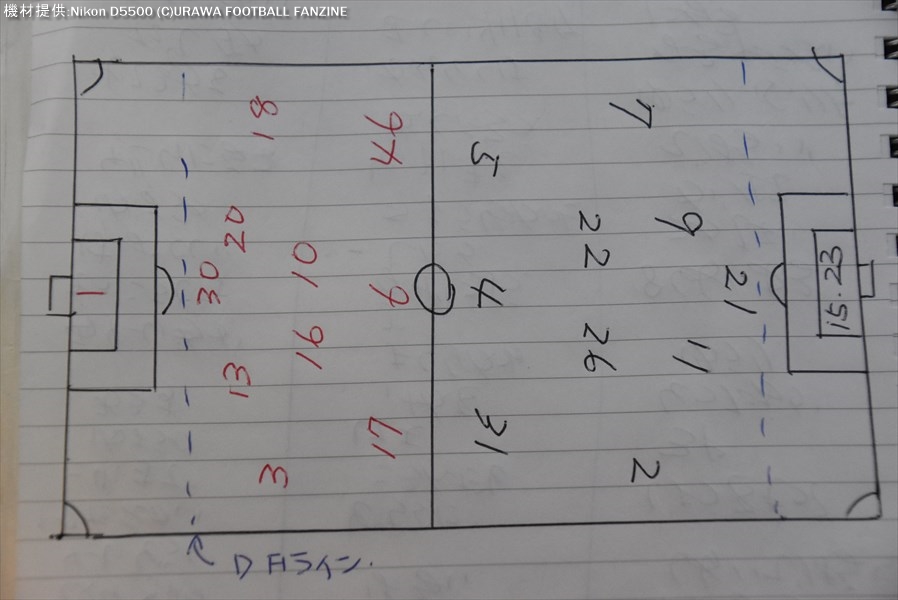 機材提供:Nikon D5500 (C)URAWA FOOTBALL FANZINE
18
46
7
5
20
22
9
10
30
1
6
4
21
15.23
16
26
11
13
17
31
3
2
DFライン.